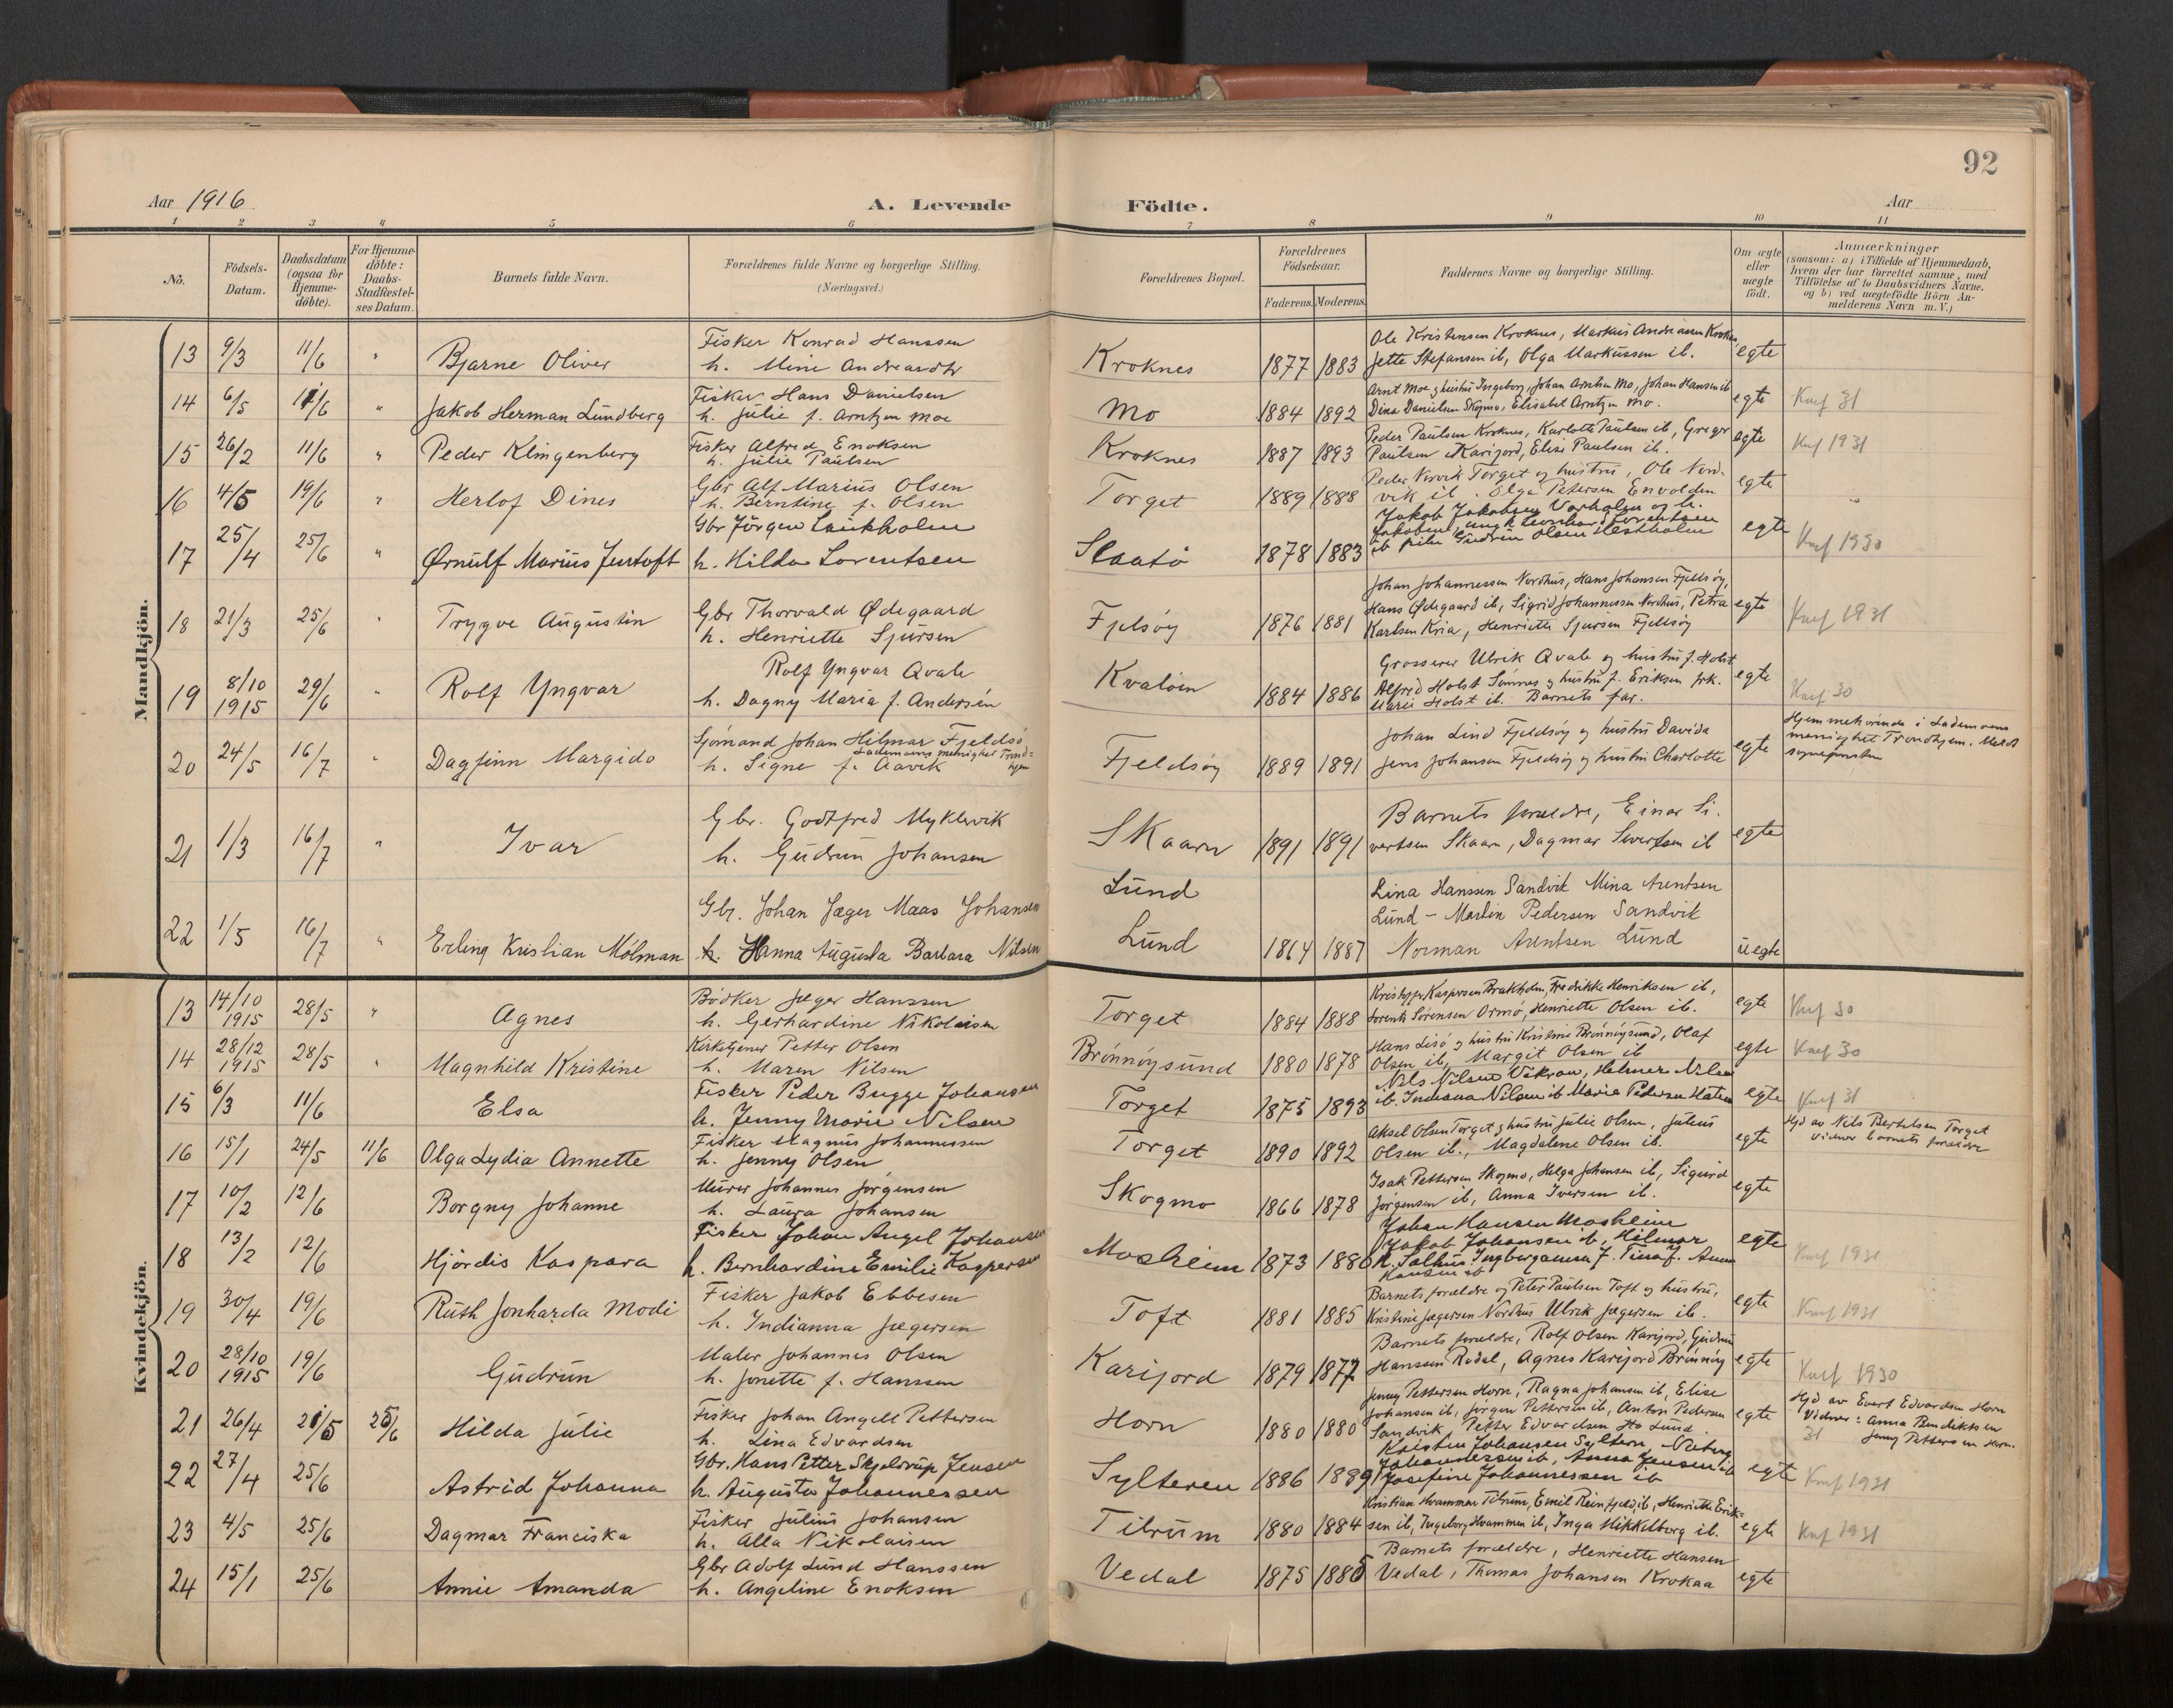 92
Aar 1916
A. Levende
Födte.
Aar
1 2 3 4 5 6 7 8 9 10 11
No.
Födsels-Datum.
Daabsdatum (ogsaa for Hjemme-döbte).
For Hjemme-döbte: Daabs-Stadfæstel-ses Datum.
Barnets fulde Navn.
Forældrenes fulde Navne og borgerlige Stilling.
(Næringsvei.)
Forældrenes Bopæl.
Forældrenes Födselsaar.
Faderens. Moderens.
Faddernes Navne og borgerlige Stilling.
Om ægte eller uægte født.
Anmærkninger
(saasom: a) i Tilfælde af Hjemmedaab,
hvem der har forrettet samme, med
Tilföielse af to Daabsvidners Navne,
og b) ved uægtefödte Börn An-
melderens Navn m. V.)
Mandkjön.
13 9/3 11/6 " Bjarne Oliver
Fisker Konrad Hanssen
h. Mine Andreasdtr
Kroknes 1877 1883
Ole Kristensen Kroknes, Markus Andreassen Kroknes
Jette Stefansen ib, Olga Markussen ib.
egte
14 6/5 11/6 " Jakob Herman Lundberg
Fisker Hans Danielsen
h. Julie f. Arntzen Moe
Mo 1884 1892
Arnt Moe og hustru Ingeborg, Johan Arntsen Mo, Johan Hansen ib
Dina Danielsen Skogmo, Elisabet Arntzen Mo.
egte
Knf 31
15 26/2 11/6 " Peder Klingenberg
Fisker Alfred Enoksen
h. Julie Paulsen
Kroknes 1887 1893
Peder Paulsen Kroknes, Karlotte Paulsen ib, Greger
Paulsen Karijord, Elise Paulsen ib.
egte
Knf 1931
16 4/5 19/6 " Herlof Dines
Gbr Alf Marius Olsen
h. Berntine f. Olsen
Torget 1889 1888
Peder Norvik Torget og hustru, Ole Nord-
vik ib. Olga Petersen Envolden
egte
17 25/4 25/6 " Ørnulf Marius Jentoft
Gbr Jörgen Laukholm
h. Hilda Lorentsen
Slaatö 1878 1883
Jakob Jakobsen Vorholm og h.
Jakobine, ungk Leonhard Lorentsen
ib pike Gudrun Olsen Hestholm
egte
Knf 1930
18 21/3 25/6 " Trygve Augustin
Gbr Thorvald Ødegaard
h. Henriette Sjursen
Fjelsøy 1876 1881
Johan Johannessen Nordhus, Hans Johansen Fjeldsøy,
Hans Ødegaard ib, Sigrid Johannessen Nordhus, Petra
Karlsen Kria, Henriette Sjursen Fjeldsøy
egte
Knf 1931
19 8/10 1915 29/6 " Rolf Yngvar
Rolf Yngvar Qvale
h. Dagny Maria f. Andersén
Kvaløen 1884 1886
Grosserer Ulrik Qvale og hustru f. Holst
Alfred Holst Sömnes og hustru f. Eriksen frk.
Marie Holst ib. Barnets far.
egte
Knf 30
20 24/5 16/7 " Dagfinn Margido
Sjömand Johan Hilmar Fjeldsö
Lademoens menighet Trond-hjem
h. Signe f. Aavik
Fjeldsøy 1889 1891
Johan Lind Fjeldsøy og hustru Davida
Jens Johansen Fjeldsøy og hustru Charlotte
egte
Hjemmehörende i Lademoens
menighet Trondhjem. Meldt
sognepresten
21 1/3 16/7 " Ivar
Gbr. Godtfred Myklevik
h. Gudrun Johansen
Skaarn 1891 1891
Barnets forældre, Einar Si-
vertsen Skaarn, Dagmar Sivertsen ib
egte
22 1/5 16/7 " Erling Kristian Mölman
Gbr. Johan Jæger Maas Johansen
h. Hanna Augusta Barbara Nilsen
Lund
Lund 1864 1887
Lina Hanssen Sandvik Mina Arentsen
Lund - Martin Pedersen Sandvik
Norman Arentsen Lund
uegte
Kvindekjön.
13 14/10 1915 28/5 " Agnes
Bödker Jæger Hanssen
h. Gerhardine Nikolaisen
Torget 1884 1888
Kristoffer Kaspersen Brakholm, Fredrikke Henriksen ib,
Sorents Sörensen Ormö, Henriette Olsen ib.
egte
Knf 30
14 28/12 1915 28/5 " Magnhild Kristine
Kirketjener Petter Olsen
h. Maren Nilsen
Brönnöysund 1880 1878
Hans Lisö og hustru Kristine Brönnöysund, Olaf
Olsen ib, Margit Olsen ib
egte
Knf 30
15 6/3 11/6 Elsa
Fisker Peder Bugge Johansen
h. Jenny Marie Nilsen
Torget 1875 1893
Nils Nilsen Vikran, Helmer Nilsen
ib. Indiana Nilsen ib Marie Pedersen Haten
egte
Knf 31
16 15/1 24/5 11/6 Olga Lydia Annette
Fisker Magnus Johannessen
h. Jenny Olsen
Torget 1890 1892
Aksel Olsen Torget og hustru Julie Olsen, Julius
Olsen ib., Magdalene Olsen ib.
egte
Hjd av Nils Bertelsen Torget
Vidner barnets forældre
17 10/2 12/6 Borgny Johanne
Murer Johannes Jørgensen
h. Laura Johansen
Skogmo 1866 1878
Isak Pettersen Skogmo, Helga Johansen ib, Sigurd
Jørgensen ib, Anna Iversen ib.
egte
18 13/2 12/6 Hjördis Kaspara
Fisker Johan Angel Johansen
h. Bernhardine Emilie Kaspersen
Mosheim 1873 1880
Johan Hansen Mosheim
Jakob Johansen ib, Hilmar
K. Salhus Ingborganna J. Tina J. Anna
Hansen ib
egte
Knf 1931
19 30/4 19/6 Ruth Jonharda Modi
Fisker Jakob Ebbesen
h. Indianna Jægersen
Toft 1881 1885
Barnets forældre og Peter Paulsen Toft og hustru,
Kristine Jægersen Nordhus Ulrik Jægersen ib.
egte
Knf 1931
20 28/10 1915 19/6 Gudrun
Maler Johannes Olsen
h. Jonette f. Hanssen
Karijord 1879 1877
Barnets forældre, Rolf Olsen Karijord, Gudrun
Hanssen Rødal, Agnes Karijord Brönnöy
egte
Knf 1930
21 26/4 21/5 25/6 Hilda Julie
Fisker Johan Angell Pettersen
h. Lina Edvardsen
Horn 1880 1880
Jenny Pettersen Horn, Ragna Johansen ib, Elise
Johansen ib, Jørgen Pettersen ib, Anton Pedersen
Sandvik Petter Edvardsen Lund
egte
Hjd av Evert Edvardsen Horn
Vidner: Anna Bendiktsen
31 Jenny Pettersen Horn.
22 27/4 25/6 Astrid Johanna
Gbr. Hans Petter Skjeldrup Jensen
h. Augusta Johannessen
Sylteren 1886 1889
Kristen Johansen Sylteren,
Johannessen ib, Anna Jensen ib
Josefine Johannessen ib
egte
Knf 1931
23 4/5 25/6 Dagmar Franciska
Fisker Julius Johansen
h. Alla Nikolaisen
Tilrum 1880 1884
Kristian Hvammen Tilrum, Emil Reinfjeld ib, Henriette Erik-
sen ib, Ingeborg Hvammen ib, Inga Mikkelborg ib.
egte
Knf 1931
24 15/1 25/6 Annie Amanda
Gbr Adolf Lund Hanssen
h. Angeline Enoksen
Vedal 1875 1885
Barnets forældre, Henriette Hansen
Vedal, Thomas Johansen Krokaa
egte